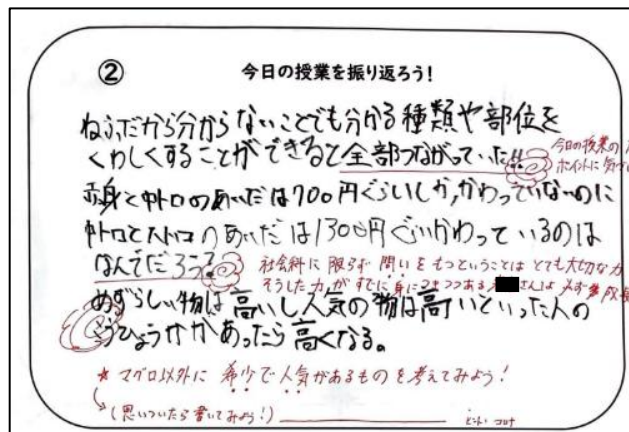 ②
今日の授業を振り返ろう!
ねふだから分からないことでも分かる種類や部位を
くわしくすることができると全部つながっていた!!
今日の授業の
ポイントに気づ
赤身と中トロのあいだは700円ぐらいしか,かわっていないのに
中トロと大トロのあいだは1300円ぐらいかわっているのは
なんでだろう?
社会科に限らず問いをもつということはとても大切な力
そうした力がすでに身につきつつある さんは必ず
めずらしい物は高いし人気の物は高いといった人の
ひょうかがあったら高くなる。
★マグロ以外に希少で人気があるものを考えてみよう!
(思いついたら書いてみよう!)